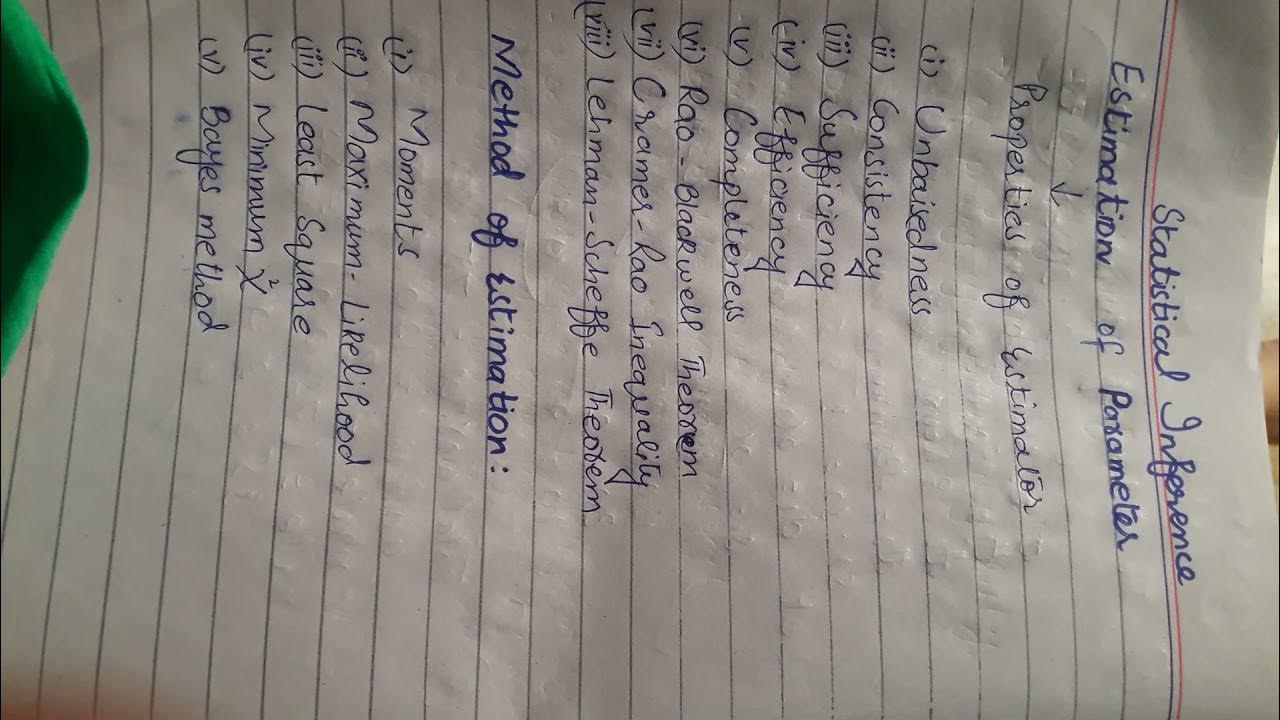 Statistical Inference
Estimation of Parameter
↓
Properties of Estimator
(i) Unbaisedness
(ii) Consistency
(iii) Sufficiency
(iv) Efficiency
(v) Completeness
(vi) Rao-Blackwell Theorem
(vii) Cramer-Rao Inequality
(viii) Lehman-Scheffe Theorem
Method of Estimation:
(i) Moments
(ii) Maximum-Likelihood
(iii) Least Square
(iv) Minimum χ²
(v) Bayes method